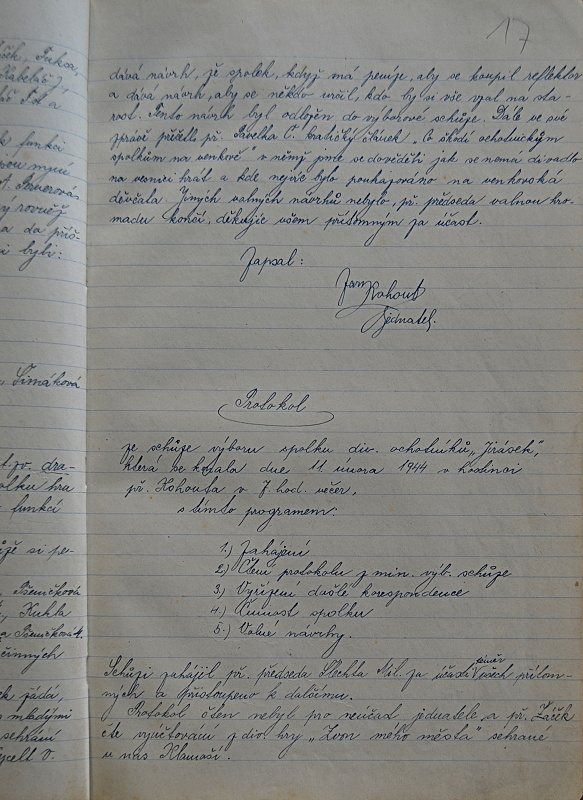 17
ček, Fuksa,
funkci
Šimáková
t.zv. dra-
olku hra
funkci
ůže si po-
Pšeničková
Kuhla
a Pšeničková
činných
k žádá
s mladými
sehrání
dává návrh, že spolek, když má peníze, aby se koupil reflektor
a dává návrh, aby se někdo určil, kdo by si vše vzal na sta-
rost. Tento návrh byl odložen do výborové schůze. Dále ve své
zprávě přečetl př. Pavelka Č. kratičký článek „Co škodí ochotnickým
spolkům na venkově" v němž jsme se dověděli jak se nemá divadlo
na vesnici hrát a kde nejvíc bylo poukazováno na venkovská
děvčata. Jiných volných návrhů nebylo, př. předseda valnou hro-
madu končí, děkujíc všem přítomným za účast.
Zapsal:
Jan Kohout
jednatel.
Protokol
ze schůze výboru spolku div. ochotníků „Jirásek",
která se konala dne 11 února 1944 v hostinci
př. Kohouta v 7 hod. večer,
s tímto programem:
1.) Zahájení
2.) Čtení protokolu z min. výb. schůze
3.) Vyřízení došlé korespondence
4.) Činnost spolku
5.) Volné návrhy.
Schůzi zahájil př. předseda Šlechta Vál. za účasti téměř všech přítom-
ných a přistoupeno k dalšímu.
Protokol čten nebyl pro neúčast jednatele a př. Žáček
čte vyúčtování z div. hry „Zvon mého města" sehrané
u nás Klamoší.